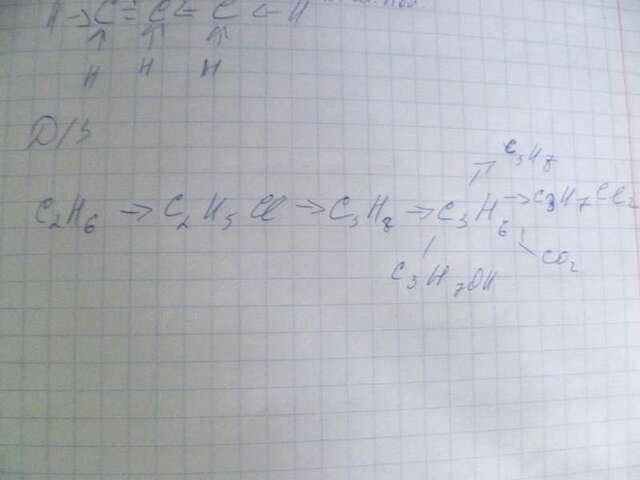 H → C = C ← C ← H
↑ ↑ ↑
H H H
Д/З
C₃H₈
C₂H₆ → C₂H₅Cl → C₃H₈ → C₃H₆ → C₃H₇Cl₂
CO₂
C₃H₇OH